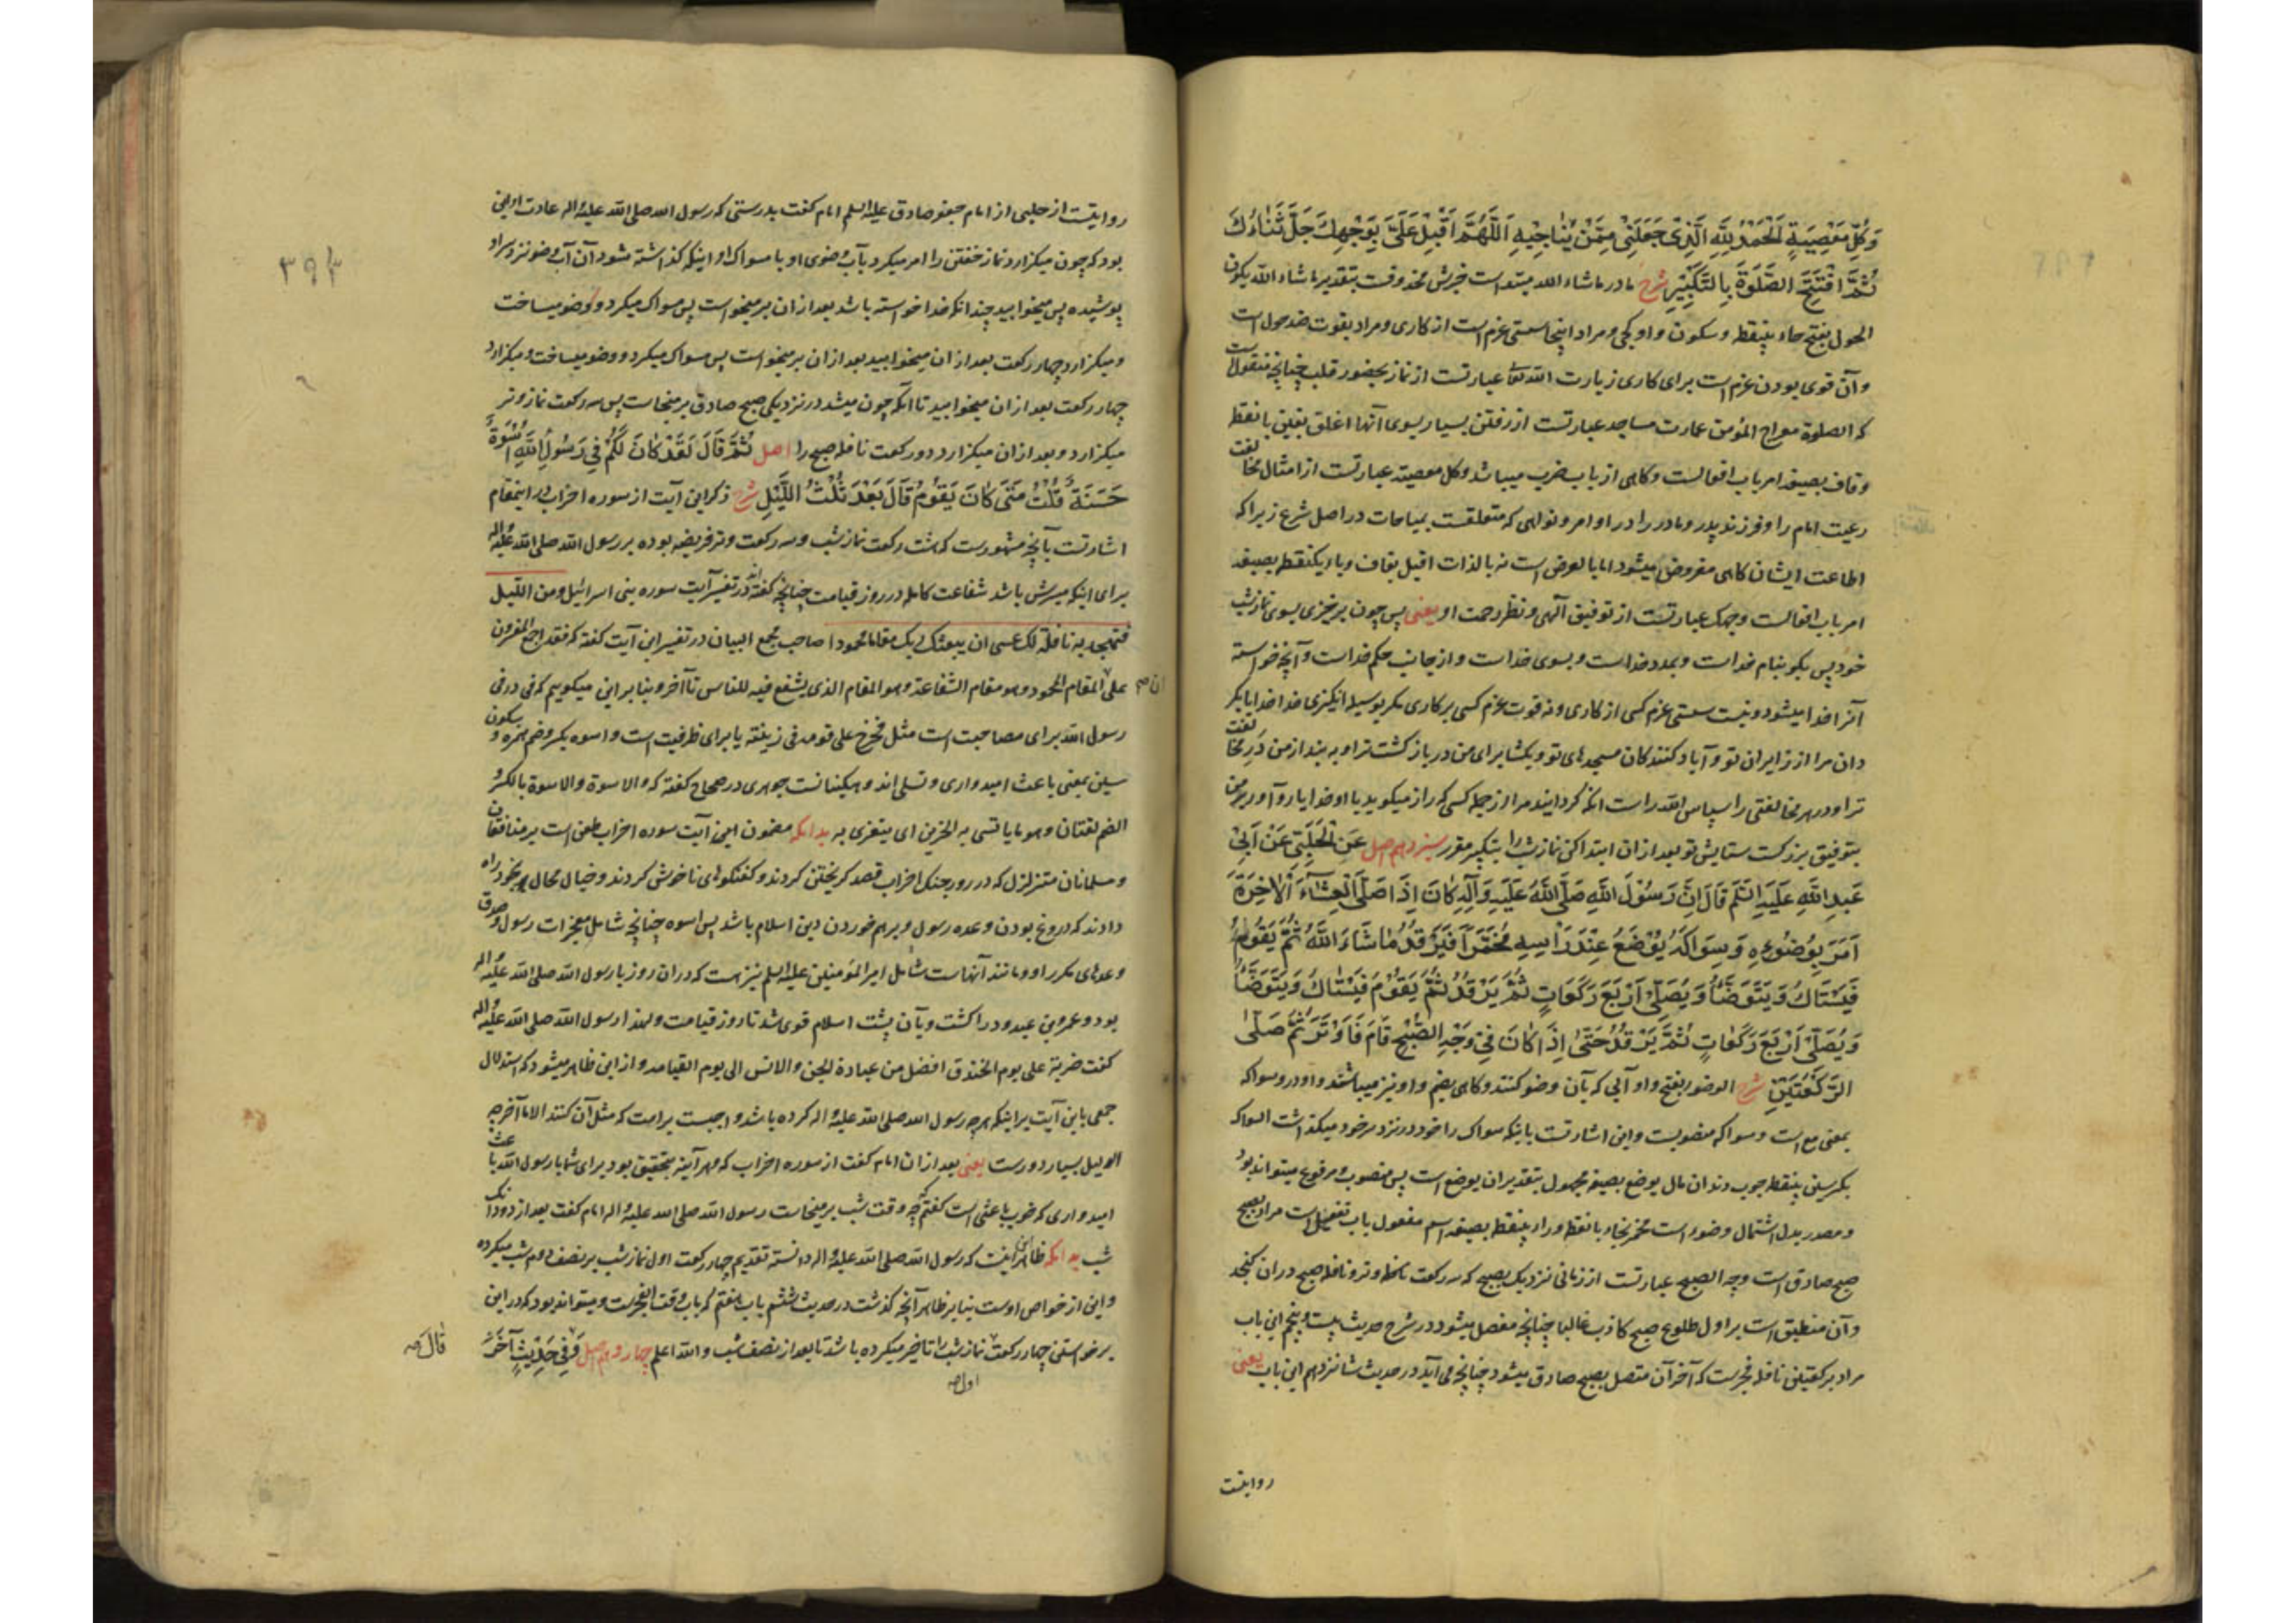 وَكُلِّ مَعْصِيَةٍ اَلْحَمْدُ لِلَّهِ الَّذِى جَعَلَنِى مِمَّنْ يُنَاجِيهِ اَللَّهُمَّ اَقْبِلْ عَلَىَّ بِوَجْهِكَ جَلَّ ثَنَاءُكَ
ثُمَّ افْتَتِحِ الصَّلَوةَ بِالتَّكْبِيْرِ شرح ما در ماشاء الله مبتداست خبرش محذوفست بتقدیر ما شاء الله یکون
الحول بفتح حاء بینقطه و سکون واو کجی و مراد اینجا سستی عزم است از کاری و مراد بقوت ضد حول است
وآن قوی بودن عزم است برای کاری زیارت الله تعا عبارتست از نماز بحضور قلب چنانچه منقولست
که الصلوة معراج المؤمن عمارت مساجد عبارتست از رفتن بسیار بسوی آنها اغلق بغین بانقطه
وقاف بصیغه امر باب افعالست و کاهی از باب ضرب میباشد وکل معصیة عبارتست از امثال مخالفت
رعیت امام را و فرزند پدر و مادر را در اوامر و نواهی که متعلقست بمباحات در اصل شرع زیرا که
اطاعت ایشان کاهی مفروض میشود اما بالعرض است نه بالذات اقبل بقاف و باء یکنقطه بصیغه
امر باب افعالست وجهک عبارتست از توفیق آلهی و نظر رحمت او یعنی پس چون برخیزی بسوی نماز شب
خود پس بکو بنام خداست و بمدد خداست و بسوی خداست و از جانب حکم خداست و آنچه خواسته
آنرا خدا میشود و نیست سستی عزم کسی از کاری و نه قوت عزم کسی بر کاری مکر بوسیله انکیزی خدا خدایا بکر
دان مرا از زایران تو و آباد کنندکان مسجدهای تو و بکشا برای من در بازکشت ترا و به بند از من در مخالفت
ترا و در هر مخالفتی را سپاس الله راست انکه کردانید مرا از جمله کسی که راز میکوید با او خدایا رو آور بر من
بتوفیق بزرکست ستایش تو بعد از ان ابتدا کن نماز شب را بتکبیر مقرر سیزدهم اصل عَنِ الْحَلَبِىِّ عَنْ اَبِىْ
عَبْدِ اللَّهِ عَلَيْهِ السَّلَم قَالَ اِنَّ رَسُوْلَ اللَّهِ صَلَّى اللَّهُ عَلَيْهِ وَآلِهِ كَانَ اِذَا صَلَّى الْعِشَاءَ الْاٰخِرَةَ
اَمَرَ بِوَضُوْئِهِ وَسِوَاكِهِ يُوْضَعُ عِنْدَ رَاْسِهِ مُخَمَّراً فَيَرْقُدُ مَا شَاءَ اللَّهُ ثُمَّ يَقُوْمُ
فَيَسْتَاكُ وَيَتَوَضَّأُ وَيُصَلِّىْ اَرْبَعَ رَكَعَاتٍ ثُمَّ يَرْقُدُ ثُمَّ يَقُوْمُ فَيَسْتَاكُ وَيَتَوَضَّأُ
وَيُصَلِّىْ اَرْبَعَ رَكَعَاتٍ ثُمَّ يَرْقُدُ حَتَّى اِذَا كَانَ فِىْ وَجْهِ الصُّبْحِ قَامَ فَاَوْتَرَ ثُمَّ صَلَّى
الرَّكْعَتَيْنِ شرح الوضوء بفتح واو آبی که بآن وضو کنند و کاهی بضم واو نیز میباشد واو در و سواکه
بمعنی مع است و سواکه منصوبست و این اشارتست باینکه سواک را خود در نزد سر خود میکذاشت السواک
بکسر سین بینقطه چوب دندان مال یوضع بصیغه مجهول بتقدیر ان یوضع است پس منصوب و مرفوع میتواند بود
و مصدر بدل اشتمال وضوء است مخمر بخاء بانقطه و راء بینقطه بصیغه اسم مفعول باب تفعیل است مراد بصبح
صبح صادق است وجه الصبح عبارتست از زمانی نزدیک بصبح که سه رکعت نماز وتر و نافله صبح دران کنجد
وآن منطبق است بر اول طلوع صبح کاذب غالبا چنانچه مفصل میشود در شرح حدیث بیست و پنجم این باب
مراد برکعتین نافله فجرست که آخر آن متصل بصبح صادق میشود چنانچه می آید در حدیث شانزدهم این باب یعنی
روایتست
۳۹۳
روایتست از حلبی از امام جعفر صادق علیه السلم امام کفت بدرستی که رسول الله صلی الله علیه واله عادت او این
بود که چون میکزارد نماز خفتن را امر میکرد بآب وضوی او با مسواک او اینکه کذاشته شود آن آب وضو نزد سر او
پوشیده پس میخوابید چندانکه خدا خواسته باشد بعد از ان برمیخواست پس مسواک میکرد و وضو میساخت
و میکزارد چهار رکعت بعد از ان میخوابید بعد از ان برمیخواست پس مسواک میکرد و وضو میساخت و میکزارد
چهار رکعت بعد از ان میخوابید تا آنکه چون میشد در نزدیکی صبح صادق برمیخاست پس سه رکعت نماز وتر
میکزارد و بعد از ان میکزارد دو رکعت نافله صبح را اصل ثُمَّ قَالَ لَقَدْ كَانَ لَكُمْ فِى رَسُوْلِ اللَّهِ اُسْوَةٌ
حَسَنَةٌ قُلْتُ مَتَى كَانَ يَقُوْمُ قَالَ بَعْدَ ثُلُثِ اللَّيْلِ شرح ذکر این آیت از سوره احزاب در اینمقام
اشارتست بآنچه مشهورست که هشت رکعت نماز شب و سه رکعت وتر فریضه بوده بر رسول الله صلی الله علیه واله
برای اینکه میسرش باشد شفاعت کامله در روز قیامت چنانچه کفته اند در تفسیر آیت سوره بنی اسرائیل ومن اللیل
فتهجد به نافلة لک عسی ان یبعثک ربک مقاما محمودا صاحب مجمع البیان در تفسیر این آیت کفته که فقد اجمع المفسرون
علی ان المقام المحمود هو مقام الشفاعة وهو المقام الذی یشفع فیه للناس تا آخر و بنا بر این میکوییم که فی در فی
رسول الله برای مصاحبت است مثل فخرج علی قومه فی زینته یا برای ظرفیت است واسوه بکسر و ضم همزه و سکون
سین بمعنی باعث امیدواری و تسلی اند و همین است جوهری در صحاح کفته که والاسوة والاسوة بالکسر و
الضم لغتان وهو ما یاتسی به الحزین ای یتعزی به بدانکه مضمون این آیت سوره احزاب طعن است بر منافقان
و مسلمانان متزلزل که در روز جنک احزاب قصد کریختن کردند و کفتکوهای ناخوش کردند و خیال محال بخود راه
دادند که دروغ بودن وعده رسول و برهم خوردن دین اسلام باشد پس اسوه چنانچه شامل معجزات رسول و صدق
وعدهای مکرر او و مانند آنهاست شامل امیر المؤمنین علیه السلم نیز هست که دران روز با رسول الله صلی الله علیه واله
بود و عمرو بن عبدود را کشت و بآن پشت اسلام قوی شد تا روز قیامت و لهذا رسول الله صلی الله علیه واله
کفت ضربة علی یوم الخندق افضل من عبادة الجن والانس الی یوم القیامه و از این ظاهر میشود که استدلال
جمعی باین آیت بر اینکه هرچه رسول الله صلی الله علیه واله کرده باشد واجبست بر امت که مثل آن کنند الا ما اخرجه
الدلیل بسیار دورست یعنی بعد از ان امام کفت از سوره احزاب که هر آینه بتحقیق بود برای شما با رسول الله باعث
امیدواری که خوب باعثی است کفتم که چه وقت شب برمیخاست رسول الله صلی الله علیه واله امام کفت بعد از دو دانک
شب بدانکه ظاهر این اینست که رسول الله صلی الله علیه واله دانسته تقدیم چهار رکعت اول نماز شب بر نصف دوم شب میکرده
واین از خواص اوست بنا بر ظاهر آنچه کذشت در حدیث ششم باب هفتم که باب وقت الفجرست و میتواند بود که در این
برخواستن چهار رکعت اول نماز شب را تاخیر میکرده باشد تا بعد از نصف شب والله اعلم چهاردهم اصل وَفِى حَدِيْثٍ آخَرَ
قَالَ صح